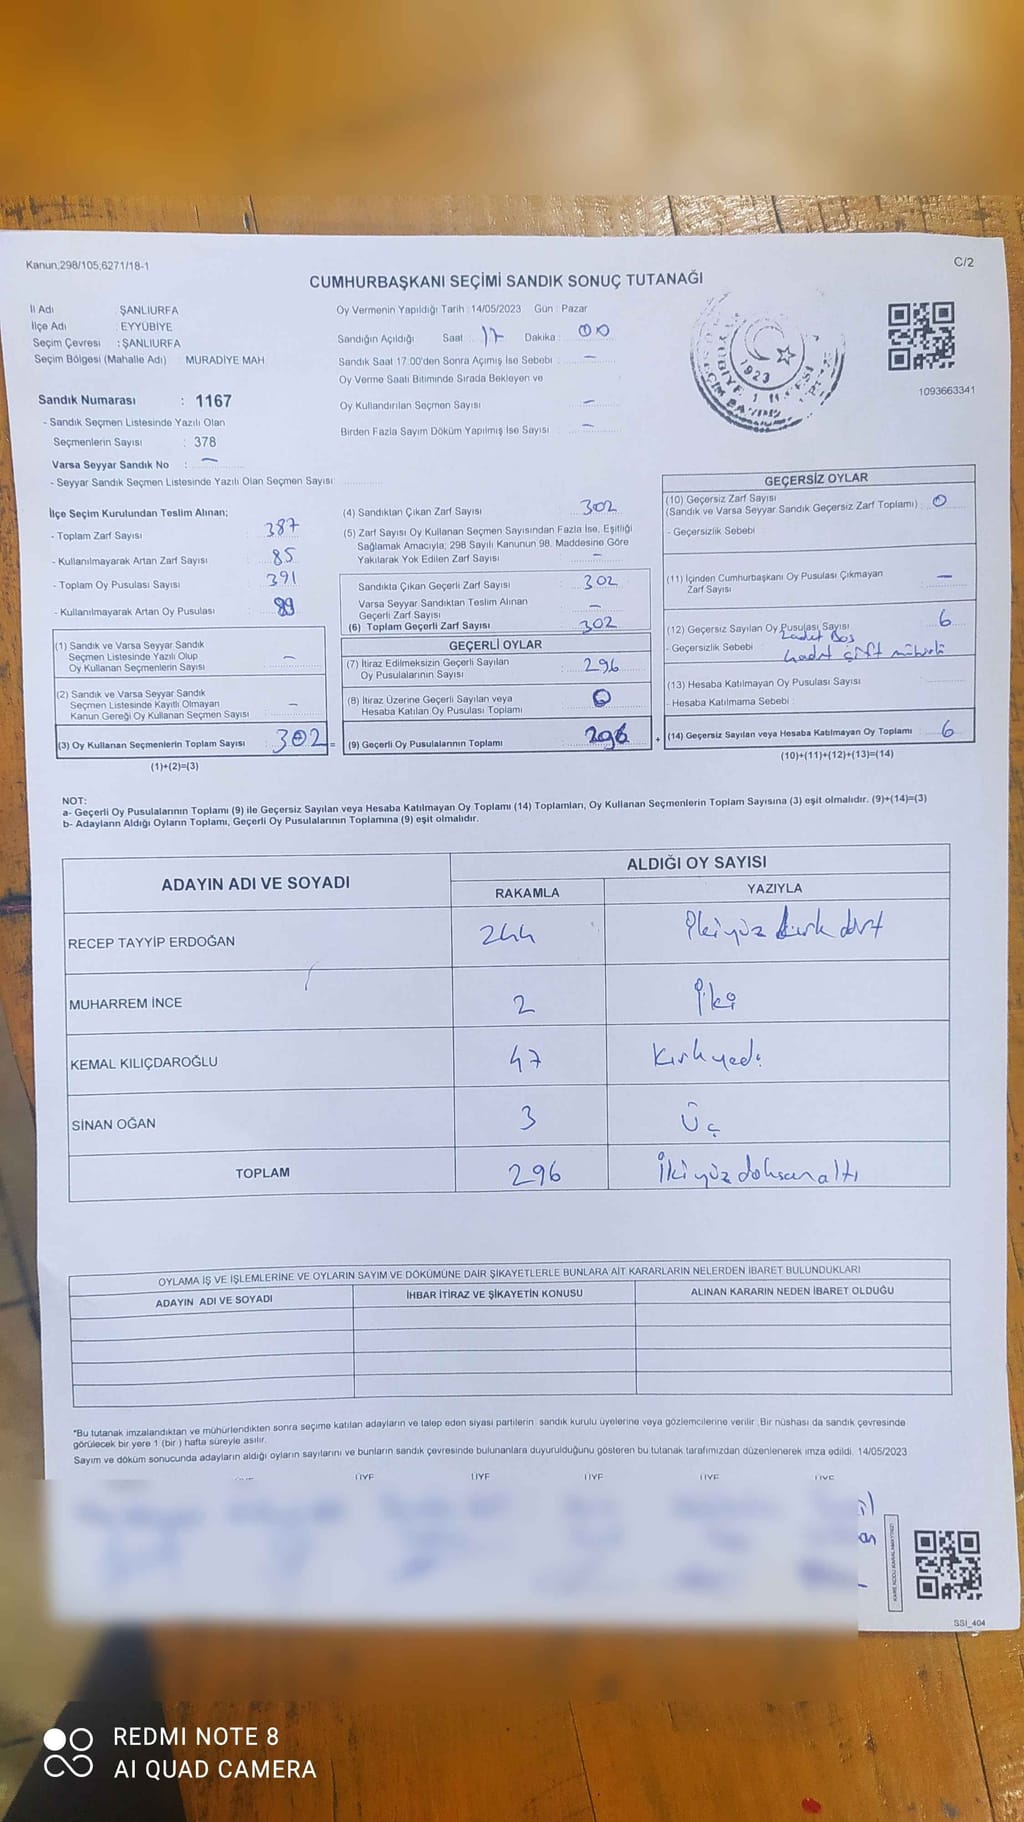 Kanun;298/105,6271/18-1
C/2
CUMHURBAŞKANI SEÇİMİ SANDIK SONUÇ TUTANAĞI
İl Adı ŞANLIURFA
İlçe Adı : EYYÜBİYE
Seçim Çevresi : ŞANLIURFA
Seçim Bölgesi (Mahalle Adı) MURADİYE MAH
Sandık Numarası : 1167
- Sandık Seçmen Listesinde Yazılı Olan
Seçmenlerin Sayısı : 378
Varsa Seyyar Sandık No : —
- Seyyar Sandık Seçmen Listesinde Yazılı Olan Seçmen Sayısı
Oy Vermenin Yapıldığı Tarih : 14/05/2023 Gün : Pazar
Sandığın Açıldığı Saat : 17 Dakika : 00
Sandık Saat 17.00'den Sonra Açımış İse Sebebi : —
Oy Verme Saati Bitiminde Sırada Bekleyen ve
Oy Kullandırılan Seçmen Sayısı : —
Birden Fazla Sayım Döküm Yapılmış İse Sayısı : —
1923
1093663341
İlçe Seçim Kurulundan Teslim Alınan;
- Toplam Zarf Sayısı : 387
- Kullanılmayarak Artan Zarf Sayısı : 85
- Toplam Oy Pusulası Sayısı : 391
- Kullanılmayarak Artan Oy Pusulası : 89
(1) Sandık ve Varsa Seyyar Sandık
Seçmen Listesinde Yazılı Olup
Oy Kullanan Seçmenlerin Sayısı : —
(2) Sandık ve Varsa Seyyar Sandık
Seçmen Listesinde Kayıtlı Olmayan
Kanun Gereği Oy Kullanan Seçmen Sayısı : —
(3) Oy Kullanan Seçmenlerin Toplam Sayısı : 302 =
(1)+(2)=(3)
(4) Sandıktan Çıkan Zarf Sayısı : 302
(5) Zarf Sayısı Oy Kullanan Seçmen Sayısından Fazla İse, Eşitliği
Sağlamak Amacıyla; 298 Sayılı Kanunun 98. Maddesine Göre
Yakılarak Yok Edilen Zarf Sayısı : —
Sandıkta Çıkan Geçerli Zarf Sayısı : 302
Varsa Seyyar Sandıktan Teslim Alınan
Geçerli Zarf Sayısı : —
(6) Toplam Geçerli Zarf Sayısı : 302
GEÇERLİ OYLAR
(7) İtiraz Edilmeksizin Geçerli Sayılan
Oy Pusulalarının Sayısı : 296
(8) İtiraz Üzerine Geçerli Sayılan veya
Hesaba Katılan Oy Pusulası Toplamı : 0
(9) Geçerli Oy Pusulalarının Toplamı : 296 +
GEÇERSİZ OYLAR
(10) Geçersiz Zarf Sayısı
(Sandık ve Varsa Seyyar Sandık Geçersiz Zarf Toplamı) : 0
- Geçersizlik Sebebi :
(11) İçinden Cumhurbaşkanı Oy Pusulası Çıkmayan
Zarf Sayısı : —
(12) Geçersiz Sayılan Oy Pusulası Sayısı : 6
- Geçersizlik Sebebi : Boş
çift mühürlü
(13) Hesaba Katılmayan Oy Pusulası Sayısı :
- Hesaba Katılmama Sebebi :
(14) Geçersiz Sayılan veya Hesaba Katılmayan Oy Toplamı : 6
(10)+(11)+(12)+(13)=(14)
NOT:
a- Geçerli Oy Pusulalarının Toplamı (9) ile Geçersiz Sayılan veya Hesaba Katılmayan Oy Toplamı (14) Toplamları, Oy Kullanan Seçmenlerin Toplam Sayısına (3) eşit olmalıdır. (9)+(14)=(3)
b- Adayların Aldığı Oyların Toplamı, Geçerli Oy Pusulalarının Toplamına (9) eşit olmalıdır.
ADAYIN ADI VE SOYADI
ALDIĞI OY SAYISI
RAKAMLA YAZIYLA
RECEP TAYYİP ERDOĞAN 244 İkiyüz kırk dört
MUHARREM İNCE 2 İki
KEMAL KILIÇDAROĞLU 47 Kırk yedi
SİNAN OĞAN 3 Üç
TOPLAM 296 İkiyüz doksan altı
OYLAMA İŞ VE İŞLEMLERİNE VE OYLARIN SAYIM VE DÖKÜMÜNE DAİR ŞİKAYETLERLE BUNLARA AİT KARARLARIN NELERDEN İBARET BULUNDUKLARI
ADAYIN ADI VE SOYADI İHBAR İTİRAZ VE ŞİKAYETİN KONUSU ALINAN KARARIN NEDEN İBARET OLDUĞU
*Bu tutanak imzalandıktan ve mühürlendikten sonra seçime katılan adayların ve talep eden siyasi partilerin sandık kurulu üyelerine veya gözlemcilerine verilir. Bir nüshası da sandık çevresinde
görülecek bir yere 1 (bir) hafta süreyle asılır.
Sayım ve döküm sonucunda adayların aldığı oyların sayılarını ve bunların sandık çevresinde bulunanlara duyurulduğunu gösteren bu tutanak tarafımızdan düzenlenerek imza edildi. 14/05/2023
ÜYE ÜYE ÜYE ÜYE ÜYE
KARE KODU KARALAMAYINIZ!
SSI_404
REDMI NOTE 8
AI QUAD CAMERA